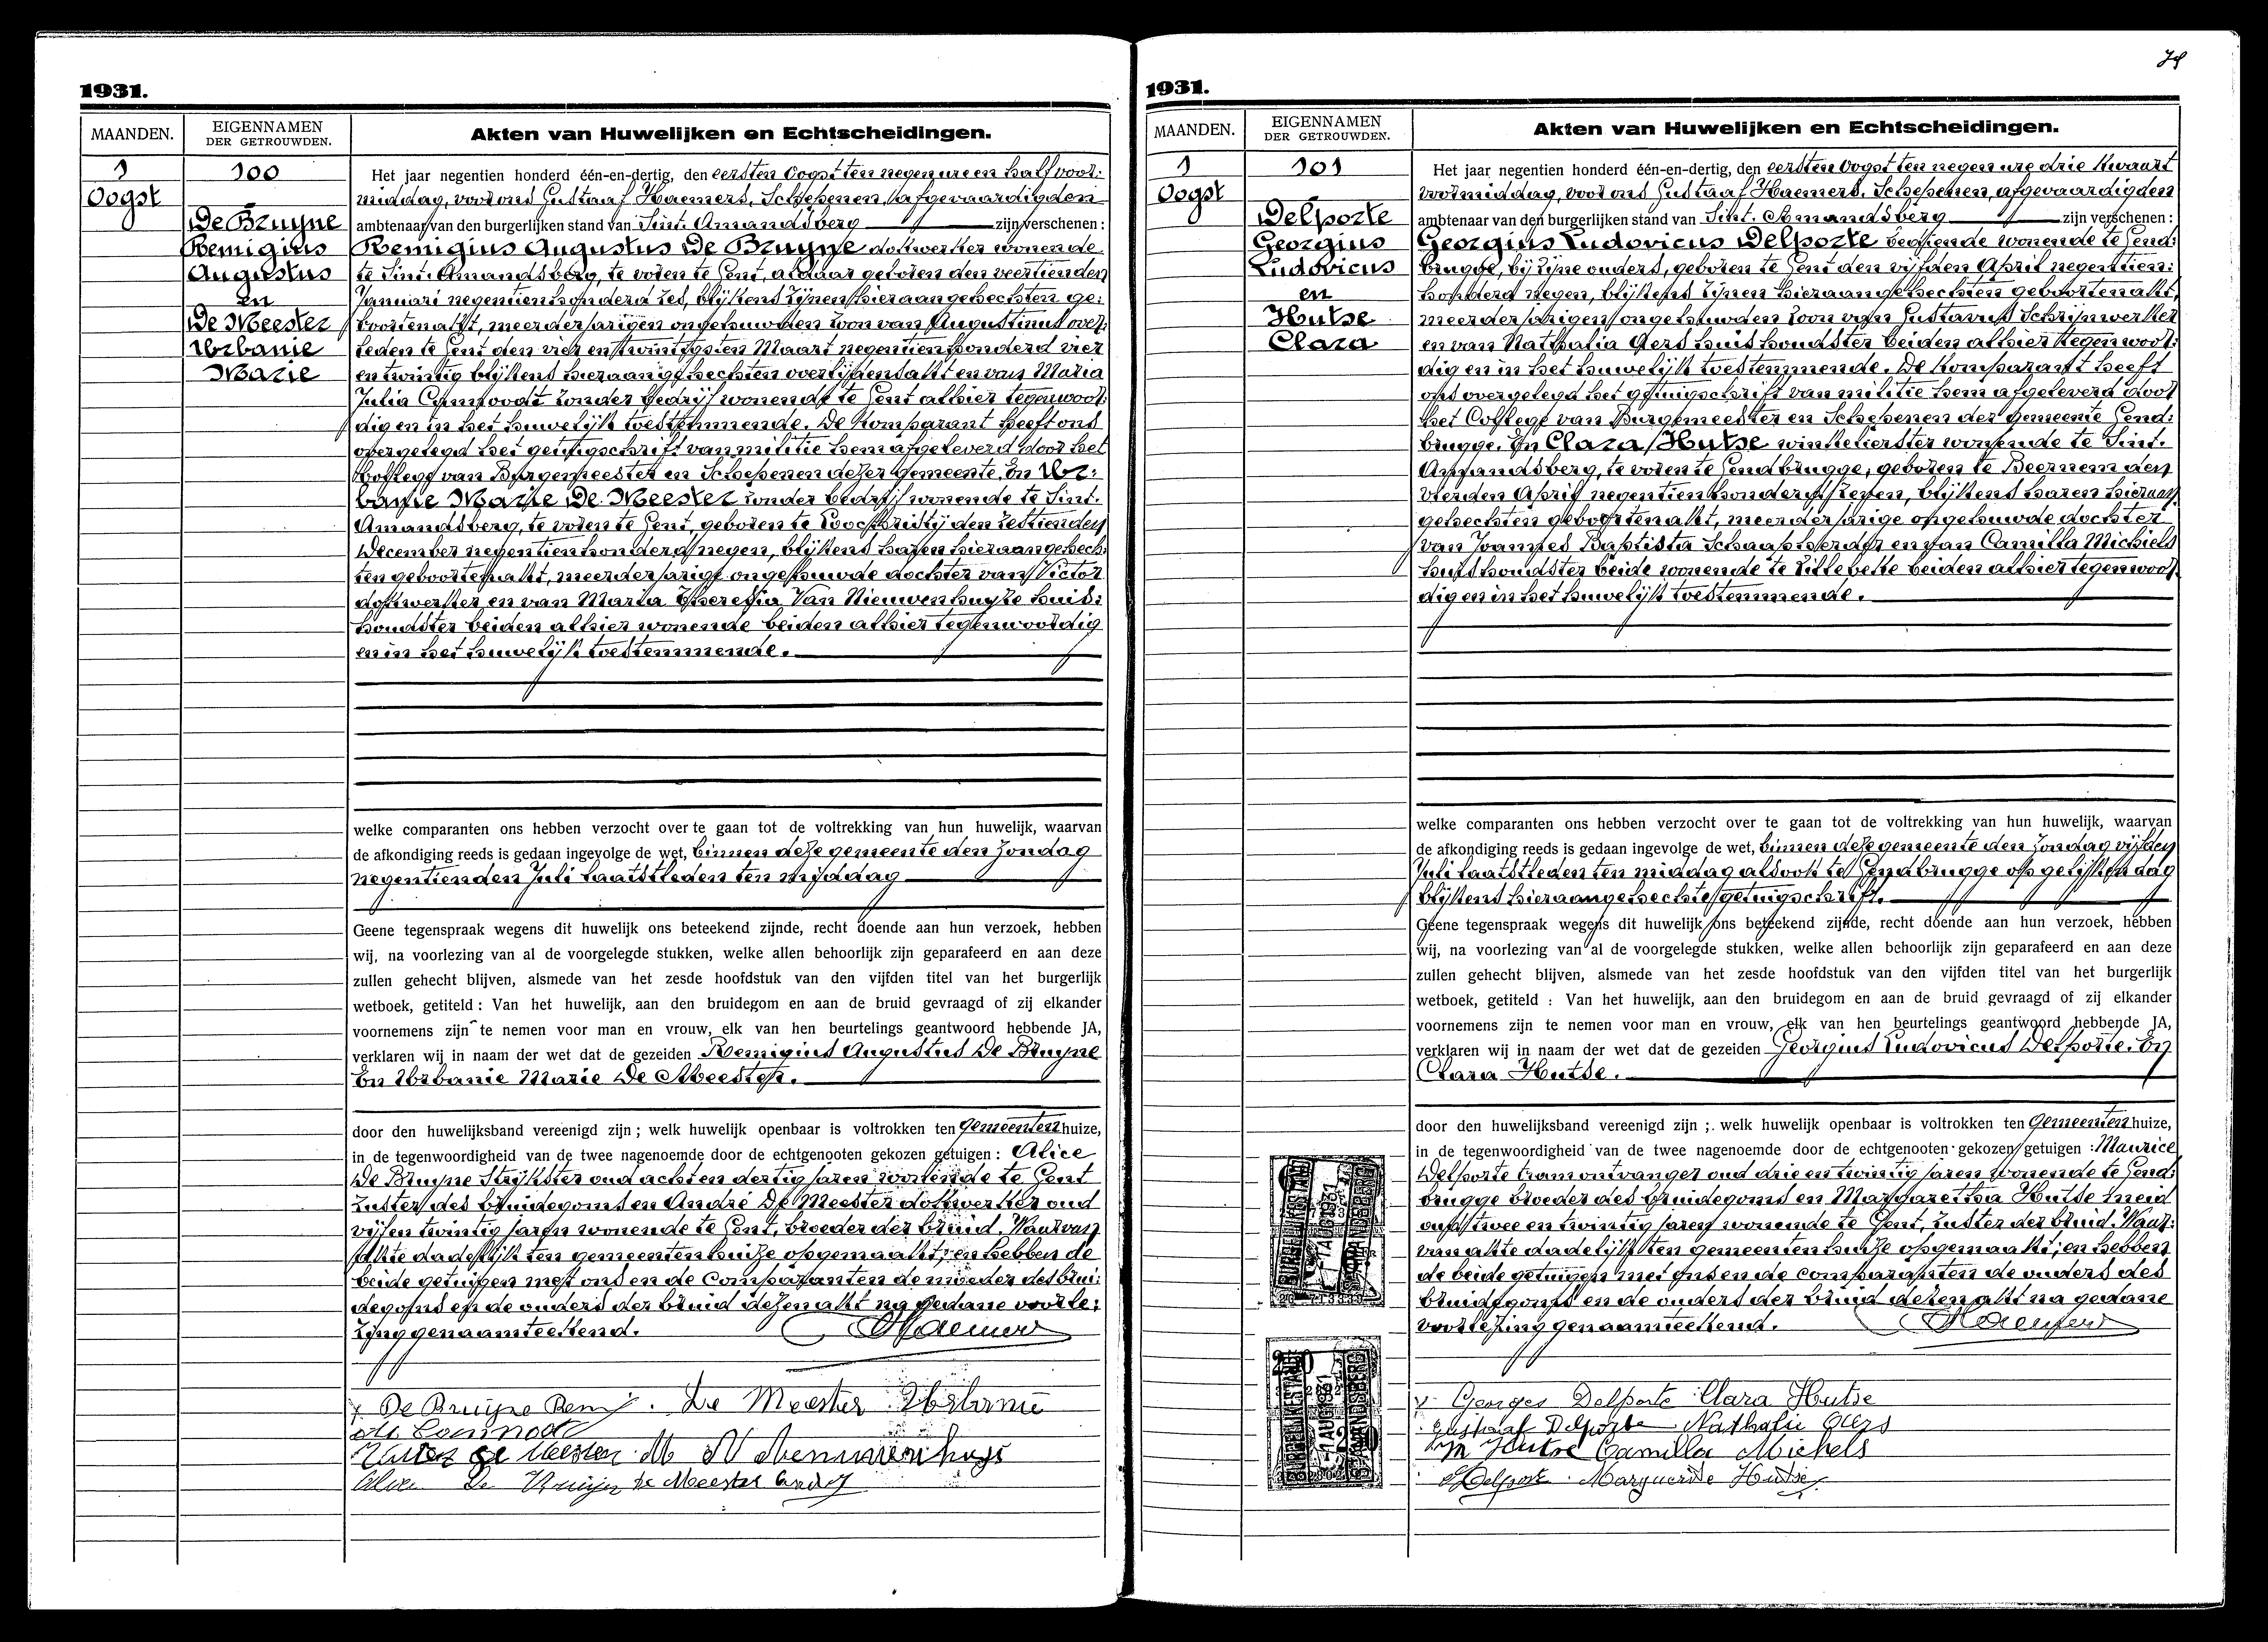 1931.
MAANDEN.
EIGENNAMEN
DER GETROUWDEN.
Akten van Huwelijken en Echtscheidingen.
1
Oogst
100
De Bruyne
Remigius
Augustus
en
De Meester
Urbanie
Marie
Het jaar negentien honderd één-en-dertig, den eersten Oogst ten negen ure en half voor:
middag, voor ons Gustaaf Haemers, Schepenen, afgevaardigden
ambtenaar van den burgerlijken stand van Sint. Amandsberg zijn verschenen :
Remigius Augustus De Bruyne dokwerker wonende
te Sint. Amandsberg, te voren te Gent, aldaar geboren den veertienden
Januari negentienhonderd zes, blijkens zijnen hieraangehechten ge:
boortenakt, meerderjarigen ongehuwden zoon van Augustinus over:
leden te Gent den vier en twintigsten Maart negentienhonderd vier
en twintig blijkens hieraangehechten overlijdensakt en van Maria
Julia zonder bedrijf wonende te Gent alhier tegenwoor:
dig en in het huwelijk toestemmende. De komparant heeft ons
overgelegd het getuigschrift van militie hem afgeleverd door het
Kollege van Burgemeester en Schepenen dezer gemeente. En Ur:
banie Marie De Meester zonder bedrijf wonende te Sint.
Amandsberg, te voren te Gent, geboren te Loochristÿ den zestienden
December negentienhonderd negen, blijkens haren hieraangehech:
ten geboortenakt, meerderjarige ongehuwde dochter van Victor
dokwerker en van Maria Theresia Van Nieuwenhuyze huis:
houdster beiden alhier wonende beiden alhier tegenwoordig
en in het huwelijk toestemmende.
welke comparanten ons hebben verzocht over te gaan tot de voltrekking van hun huwelijk, waarvan
de afkondiging reeds is gedaan ingevolge de wet, binnen deze gemeente den Zondag
negentienden Juli laatstleden ten middag
Geene tegenspraak wegens dit huwelijk ons beteekend zijnde, recht doende aan hun verzoek, hebben
wij, na voorlezing van al de voorgelegde stukken, welke allen behoorlijk zijn geparafeerd en aan deze
zullen gehecht blijven, alsmede van het zesde hoofdstuk van den vijfden titel van het burgerlijk
wetboek, getiteld : Van het huwelijk, aan den bruidegom en aan de bruid gevraagd of zij elkander
voornemens zijn te nemen voor man en vrouw, elk van hen beurtelings geantwoord hebbende JA,
verklaren wij in naam der wet dat de gezeiden Remigius Augustus De Bruyne
En Urbanie Marie De Meester.
door den huwelijksband vereenigd zijn ; welk huwelijk openbaar is voltrokken ten Gemeentenhuize,
in de tegenwoordigheid van de twee nagenoemde door de echtgenooten gekozen getuigen : Alice
De Bruyne Strijkster oud acht en dertig jaren wonende te Gent
zuster des bruidegoms en André De Meester dokwerker oud
vijf en twintig jaren wonende te Gent, broeder der bruid. Waarvan
akte dadelijk ten gemeentenhuize opgemaakt; en hebben de
beide getuigen met ons en de comparanten de moeder des brui:
degoms en de ouders der bruid dezen akt na gedane voorle:
zing genaamteekend. Haemers
De Bruyne Remi. De Meester Urbanie
De Meester M
De Bruyne De Meester André
74
1931.
MAANDEN.
EIGENNAMEN
DER GETROUWDEN.
Akten van Huwelijken en Echtscheidingen.
1
Oogst
101
Delporte
Georgius
Ludovicus
en
Hutse
Clara
Het jaar negentien honderd één-en-dertig, den eersten Oogst ten negen ure drie kwaart
voormiddag, voor ons Gustaaf Haemers, Schepenen, afgevaardigden
ambtenaar van den burgerlijken stand van Sint. Amandsberg zijn verschenen :
Georgius Ludovicus Delporte bediende wonende te Gend:
brugge, bij zijne ouders, geboren te Gent den vijfden April negentien:
honderd negen, blijkens zijnen hieraangehechten geboortenakt,
meerderjarigen ongehuwden zoon van Gustavus Schrijnwerker
en van Nathalia Gers huishoudster beiden alhier tegenwoor:
dig en in het huwelijk toestemmende. De komparant heeft
ons overgelegd het getuigschrift van militie hem afgeleverd door
het College van Burgemeester en Schepenen der gemeente Gend:
brugge. En Clara Hutse winkelierster wonende te Sint.
Amandsberg, te voren te Gendbrugge, geboren te Beernem den
vierden April negentienhonderd zeven, blijkens haren hieraan
gehechten geboortenakt, meerderjarige ongehuwde dochter
van Joannes Baptista Schaapsherder en van Camilla Michiels
huishoudster beide wonende te Zillebeke beiden alhier tegenwoor:
dig en in het huwelijk toestemmende.
welke comparanten ons hebben verzocht over te gaan tot de voltrekking van hun huwelijk, waarvan
de afkondiging reeds is gedaan ingevolge de wet, binnen deze gemeente den Zondag vijfden
Juli laatstleden ten middag alsook te Gendbrugge op gelijken dag
blijkens hieraangehechte getuigschrift.
Geene tegenspraak wegens dit huwelijk ons beteekend zijnde, recht doende aan hun verzoek, hebben
wij, na voorlezing van al de voorgelegde stukken, welke allen behoorlijk zijn geparafeerd en aan deze
zullen gehecht blijven, alsmede van het zesde hoofdstuk van den vijfden titel van het burgerlijk
wetboek, getiteld : Van het huwelijk, aan den bruidegom en aan de bruid gevraagd of zij elkander
voornemens zijn te nemen voor man en vrouw, elk van hen beurtelings geantwoord hebbende JA,
verklaren wij in naam der wet dat de gezeiden Georgius Ludovicus Delporte. En
Clara Hutse.
door den huwelijksband vereenigd zijn ; welk huwelijk openbaar is voltrokken ten Gemeentenhuize,
in de tegenwoordigheid van de twee nagenoemde door de echtgenooten gekozen getuigen : Maurice
Delporte tramontvanger oud drie en twintig jaren wonende te Gend:
brugge broeder des bruidegoms en Margaretha Hutse meid
oud twee en twintig jaren wonende te Gent, zuster der bruid. Waar:
van akte dadelijk ten gemeentenhuize opgemaakt; en hebben
de beide getuigen met ons en de comparanten de ouders des
bruidegoms en de ouders der bruid dezen akt na gedane
voorlezing genaamteekend. Haemers
Georges Delporte Clara Hutse
Gustaaf Delporte Nathalie Gers
Hutse Camilla Michels
Delporte Marguerite Hutse
BURGERLIJKE STAND
1 AUG 1931
ST AMANDSBERG
BURGERLIJKE STAND
1 AUG 1931
ST AMANDSBERG